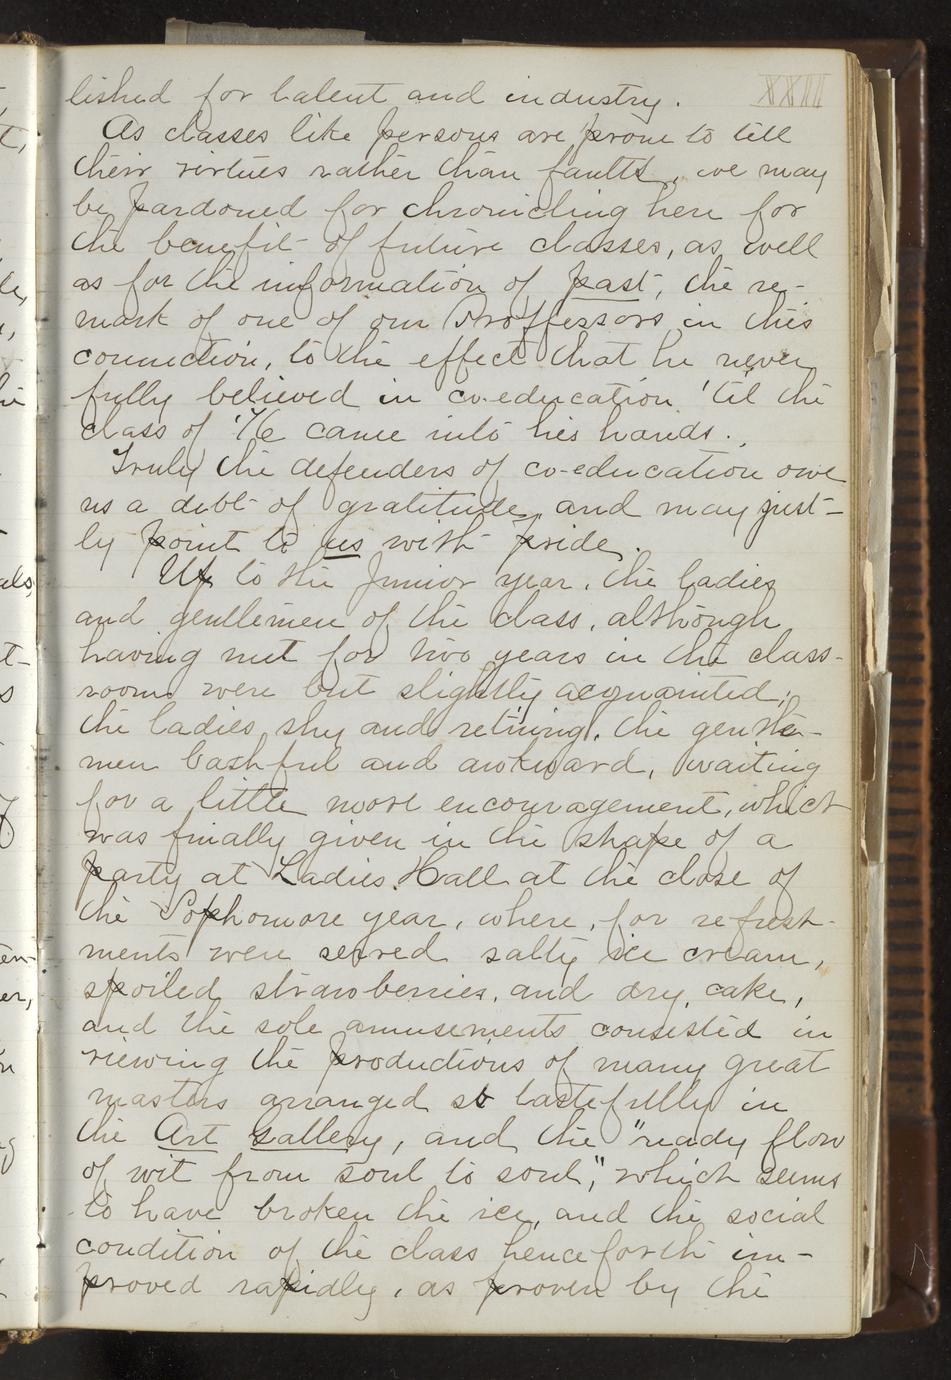 XXIII
lished for talent and industry.
As classes like persons are prone to tell
their virtues rather than faults, we may
be pardoned for chronicling here for
the benefit of future classes, as well
as for the information of past, the re-
mark of one of our Proffessors in this
connection, to the effect that he never
fully believed in co-education 'til the
class of '76 came into his hands.
Truly the defenders of co-education owe
us a debt of gratitude and may just-
ly point to us with pride.
Up to the Junior year, the ladies
and gentlemen of the class, although
having met for two years in the class-
room were but slightly acquainted;
the ladies shy and retiring, the gentle-
men bashful and awkward, waiting
for a little more encouragement, which
was finally given in the shape of a
party at Ladies Hall at the close of
the Sophomore year, where, for refresh-
ments were served salty ice cream,
spoiled strawberries, and dry cake,
and the sole amusements consisted in
viewing the productions of many great
masters arranged so tastefully in
the Art Gallery, and the "ready flow
of wit from soul to soul," which seems
to have broken the ice, and the social
condition of the class henceforth im-
proved rapidly, as proven by the